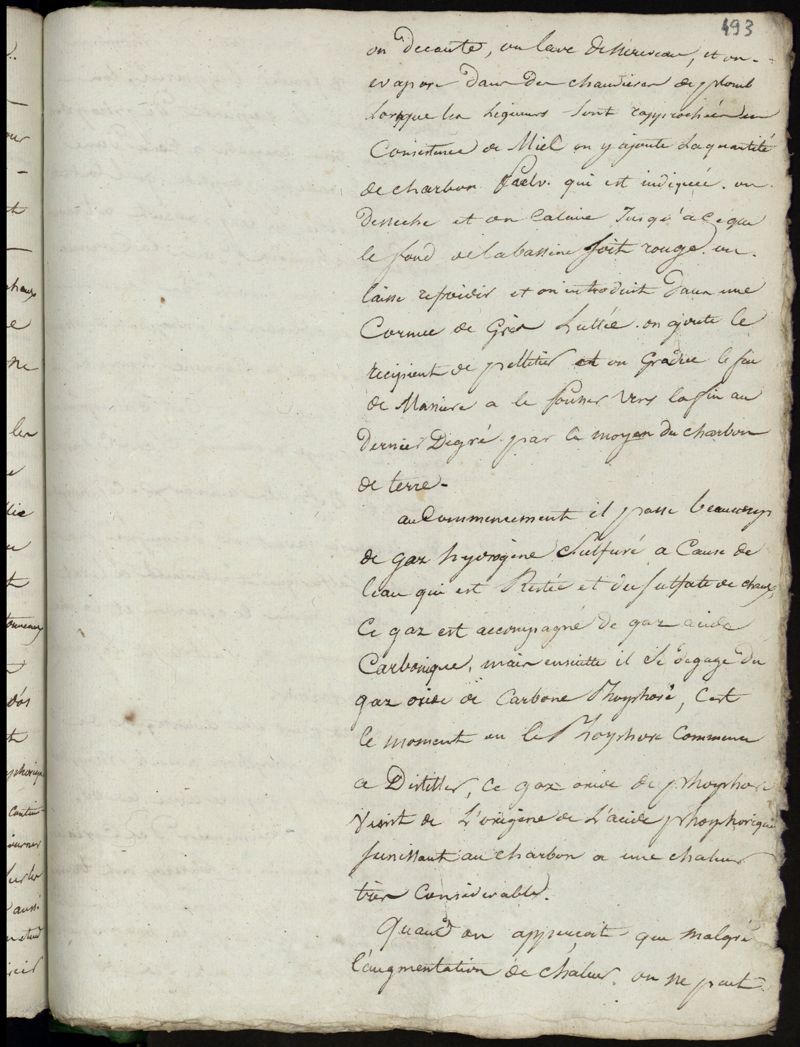 493
on decante, on lave de nouveau, et on
evapore dans des chaudieres de plomb
lorsque les liqueurs sont raprochées en
Consistence de Miel on y ajoute la quantité
de charbon qui est indiquée. on
desseche et on calcine Jusqu'a ce que
le fond de la bassine soit rouge. on
laisse refroidir et on introduit dans une
Cornue de Grès Luttée. on ajoute le
recipient de pelletier et on Gradue le feu
de Maniere a le pousser vers la fin au
dernier Degré par le moyen du charbon
de terre -
au Commencement il passe beaucoup
de gaz hydrogène Sulfuré a Cause de
l'eau qui est Restée et du sulfate de chaux,
Ce gaz est accompagné de gaz acide
Carbonique, mais ensuitte il se degage du
gaz oxide de Carbone Phosphoré, C'est
le moment ou le Phosphore Commence
a Distiller, Ce gaz oxide de phosphore
vient de L'oxigène de L'acide phosphorique
s'unissant au charbon a une chaleur
très Considerable.
Quand on apperçoit que malgré
l'augmentation de chaleur. on ne peut